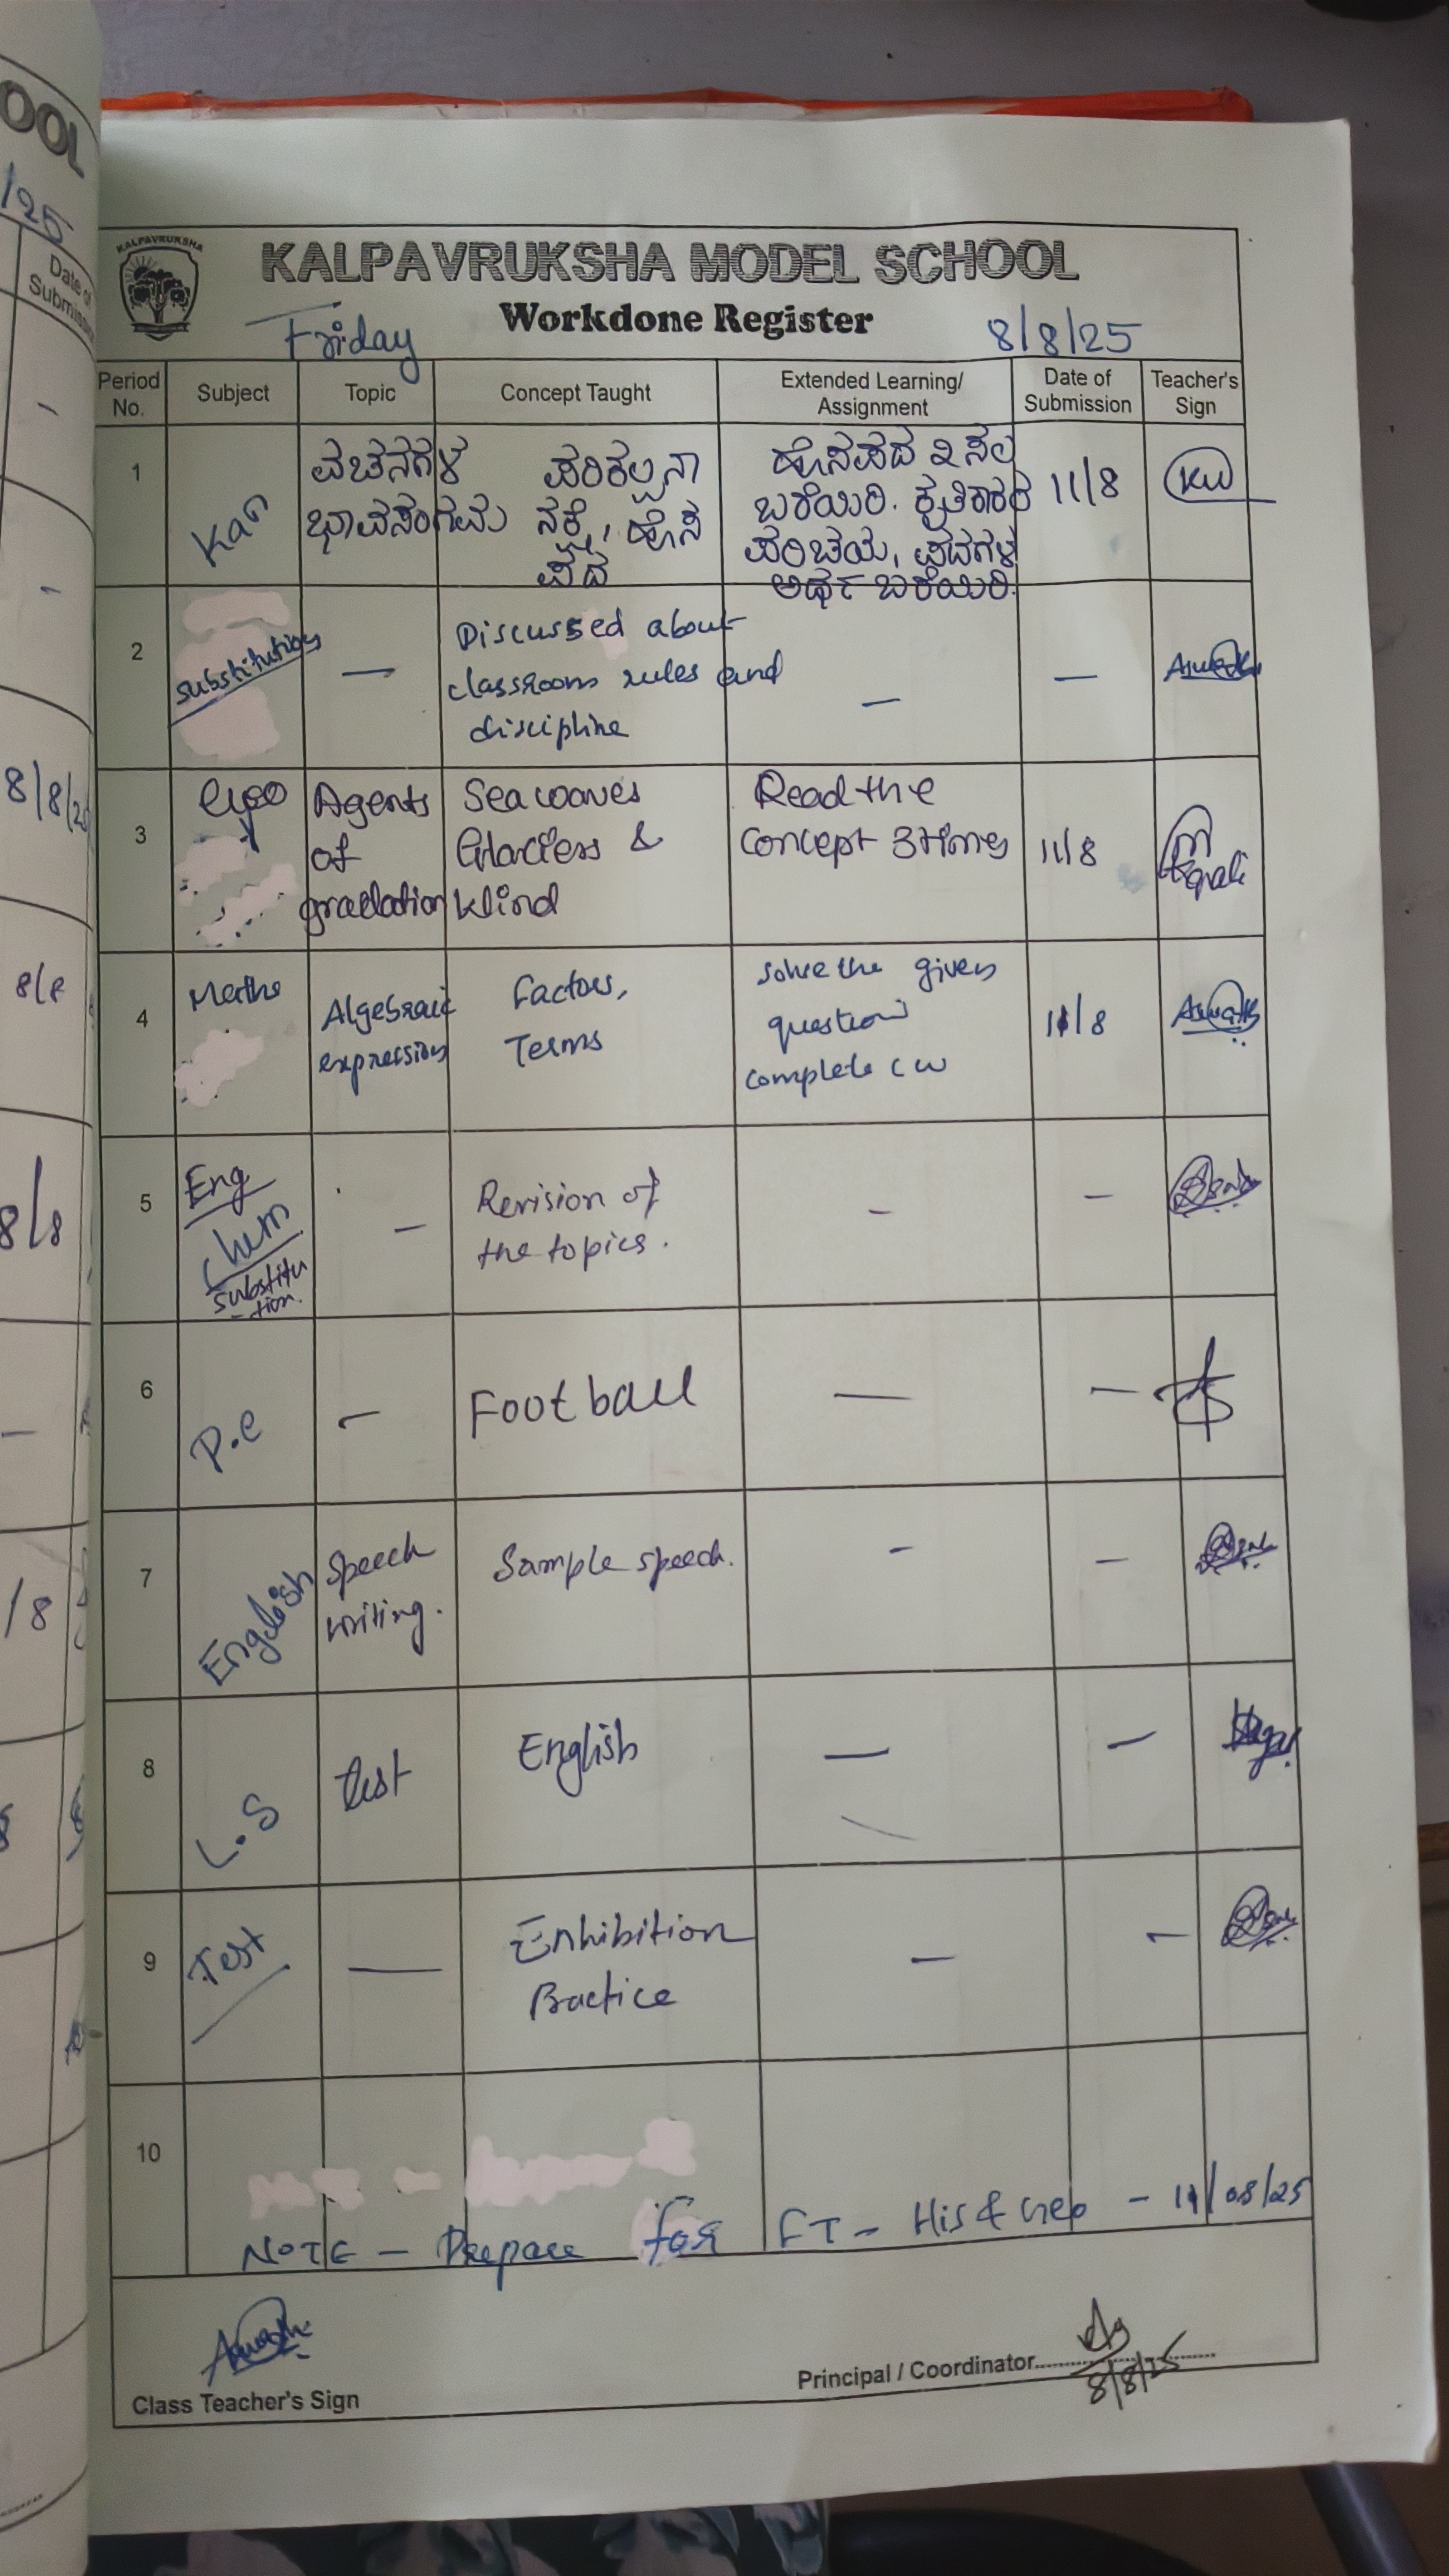 OOL
/25
Date of
Submission
8/8/25
8/8
8/8
/8
KALPAVRUKSHA
KALPAVRUKSHA MODEL SCHOOL
Workdone Register
Friday
8/8/25
Period No.
Subject
Topic
Concept Taught
Extended Learning/ Assignment
Date of Submission
Teacher's Sign
1
Kan
ವಚನಗಳ
ಭಾವಸಂಗಮ
ಪರಿಕಲ್ಪನಾ
ನಕ್ಷೆ, ಹೊಸ
ಪದ
ಹೊಸಪದ ೩ ಸಲ
ಬರೆಯಿರಿ. ಕೃತಿಕಾರರ
ಪರಿಚಯ, ಪದಗಳ
ಅರ್ಥ ಬರೆಯಿರಿ.
11/8
KW
2
substitution
—
Discussed about
classroom rules and
discipline
—
—
3
Geo
Agents
of
gradation
Sea waves
Glaciers &
Wind
Read the
concept 3 times
11/8
4
Maths
Algebraic
expression
Factors,
Terms
solve the given
question
complete cw
11/8
5
Eng
Chem
substitu
-tion.
—
Revision of
the topics.
-
-
6
P.e
-
Football
—
—
7
English
Speech
writing.
Sample speech.
-
-
8
L.S
test
English
—
—
9
Test
—
Enhibition
Practice
-
-
10
NOTE - Prepare for FT - His & Geo - 11/08/25
Class Teacher's Sign
Principal / Coordinator
8/8/25